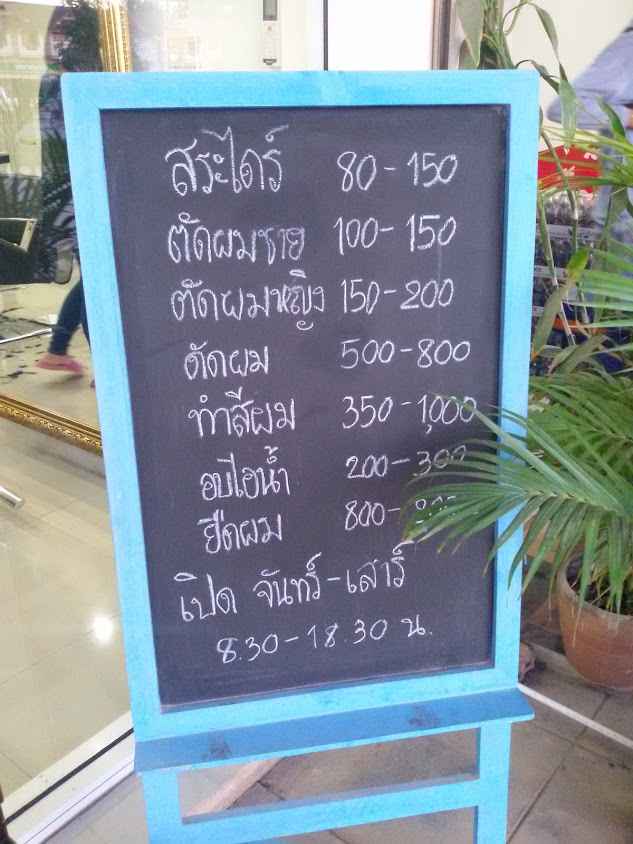 สระไดร์ 80-150
ตัดผมชาย 100-150
ตัดผมหญิง 150-200
ดัดผม 500-800
ทำสีผม 350-1,000
อบไอน้ำ 200-300
ยืดผม 800-
เปิด จันทร์-เสาร์
8.30-18.30 น.